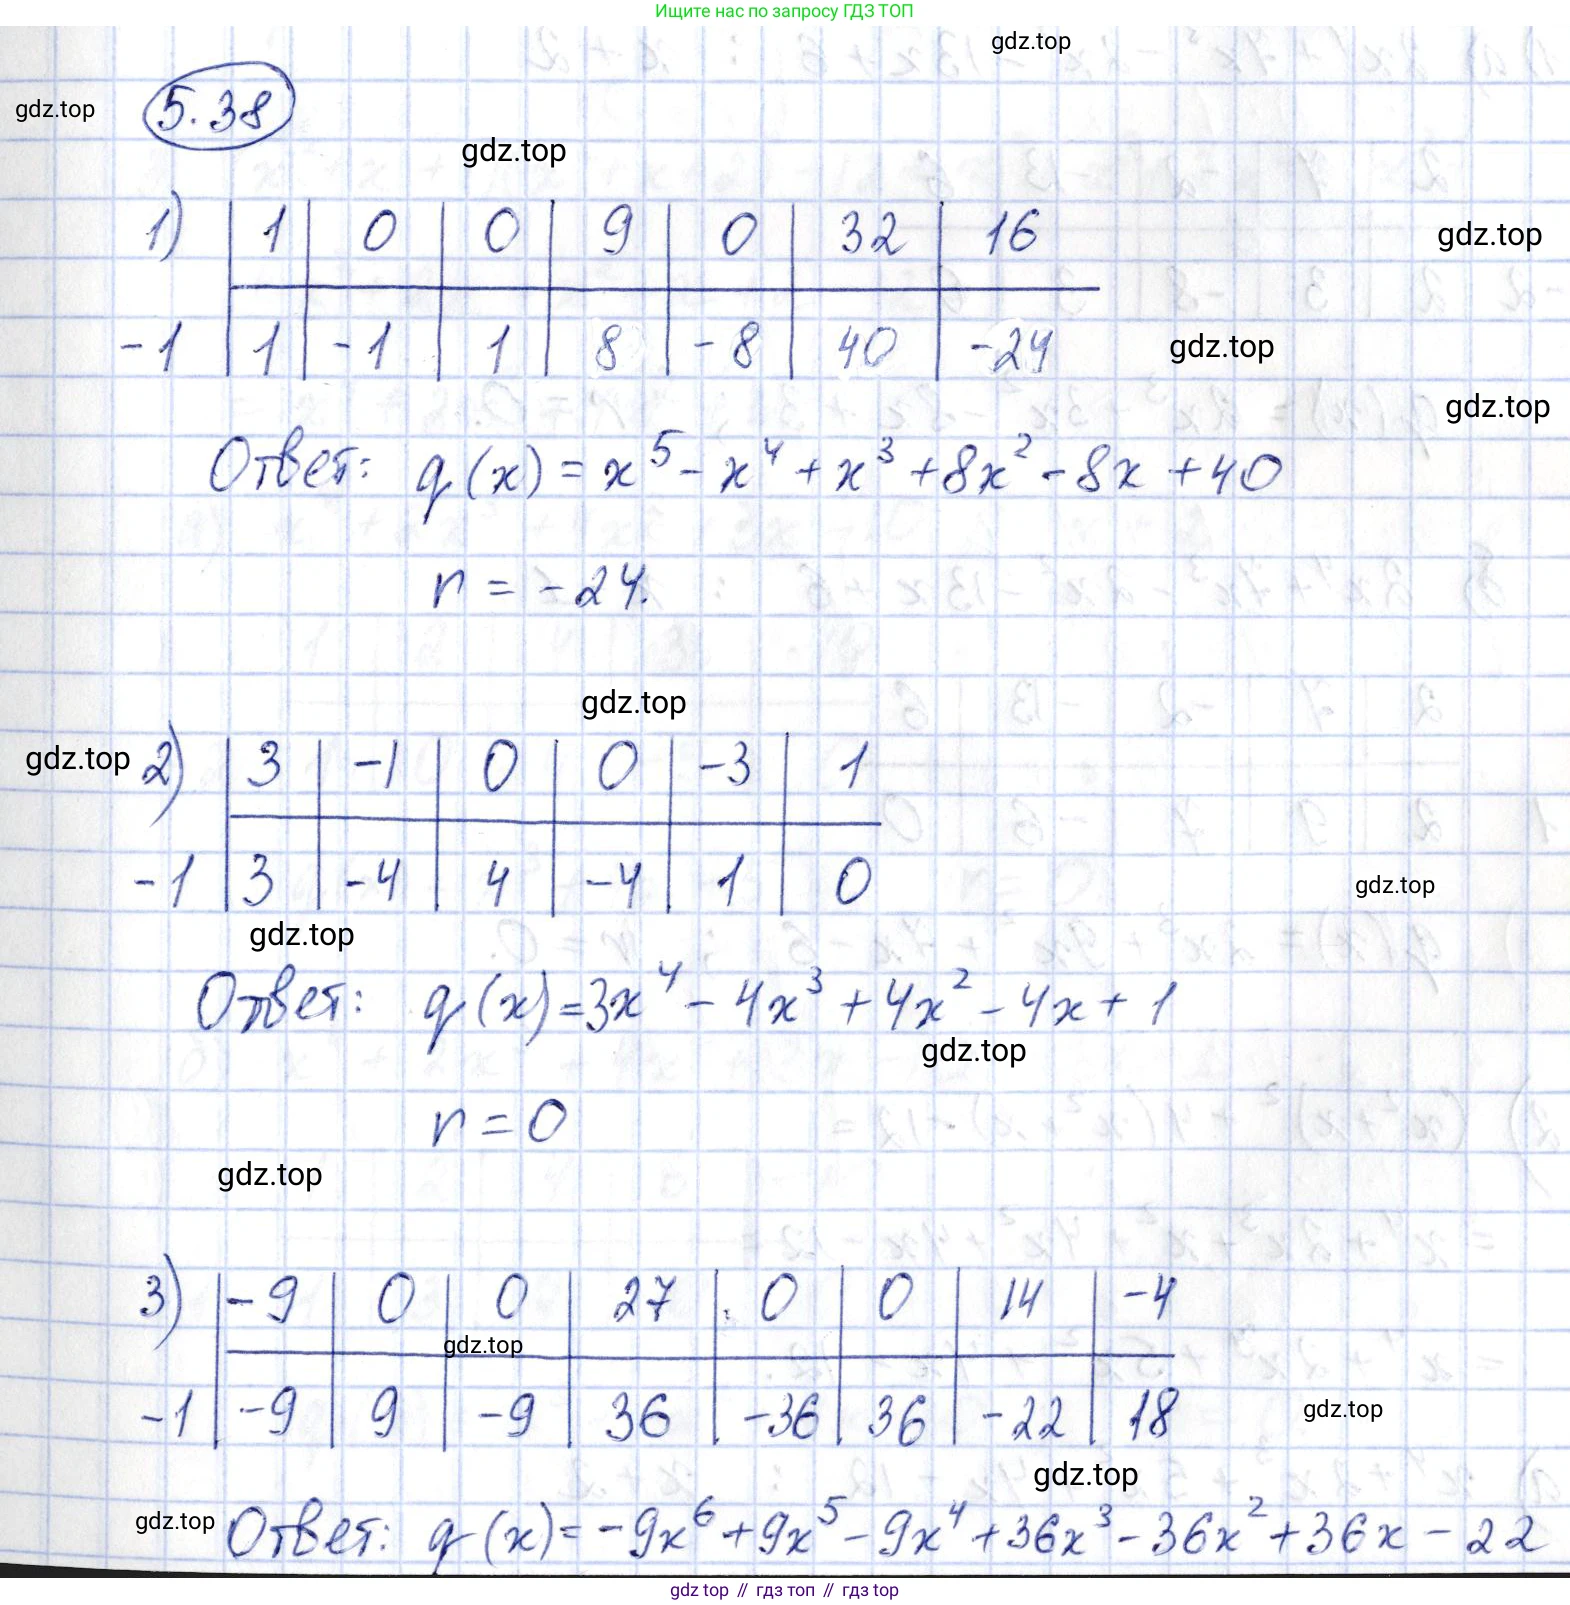 Ищите нас по запросу ГДЗ ТОП
gdz.top
gdz.top
5.38
gdz.top
1) 1 0 0 9 0 32 16
gdz.top
-1 1 -1 1 8 -8 40 -24
gdz.top
gdz.top
Ответ: q(x) = x⁵ - x⁴ + x³ + 8x² - 8x + 40
r = -24.
gdz.top
gdz.top
2) 3 -1 0 0 -3 1
-1 3 -4 4 -4 1 0
gdz.top
gdz.top
Ответ: q(x) = 3x⁴ - 4x³ + 4x² - 4x + 1
gdz.top
r = 0
gdz.top
3) -9 0 0 27 0 0 14 -4
gdz.top
-1 -9 9 -9 36 -36 36 -22 18
gdz.top
gdz.top
gdz.top
Ответ: q(x) = -9x⁶ + 9x⁵ - 9x⁴ + 36x³ - 36x² + 36x - 22
gdz top // гдз топ // gdz top